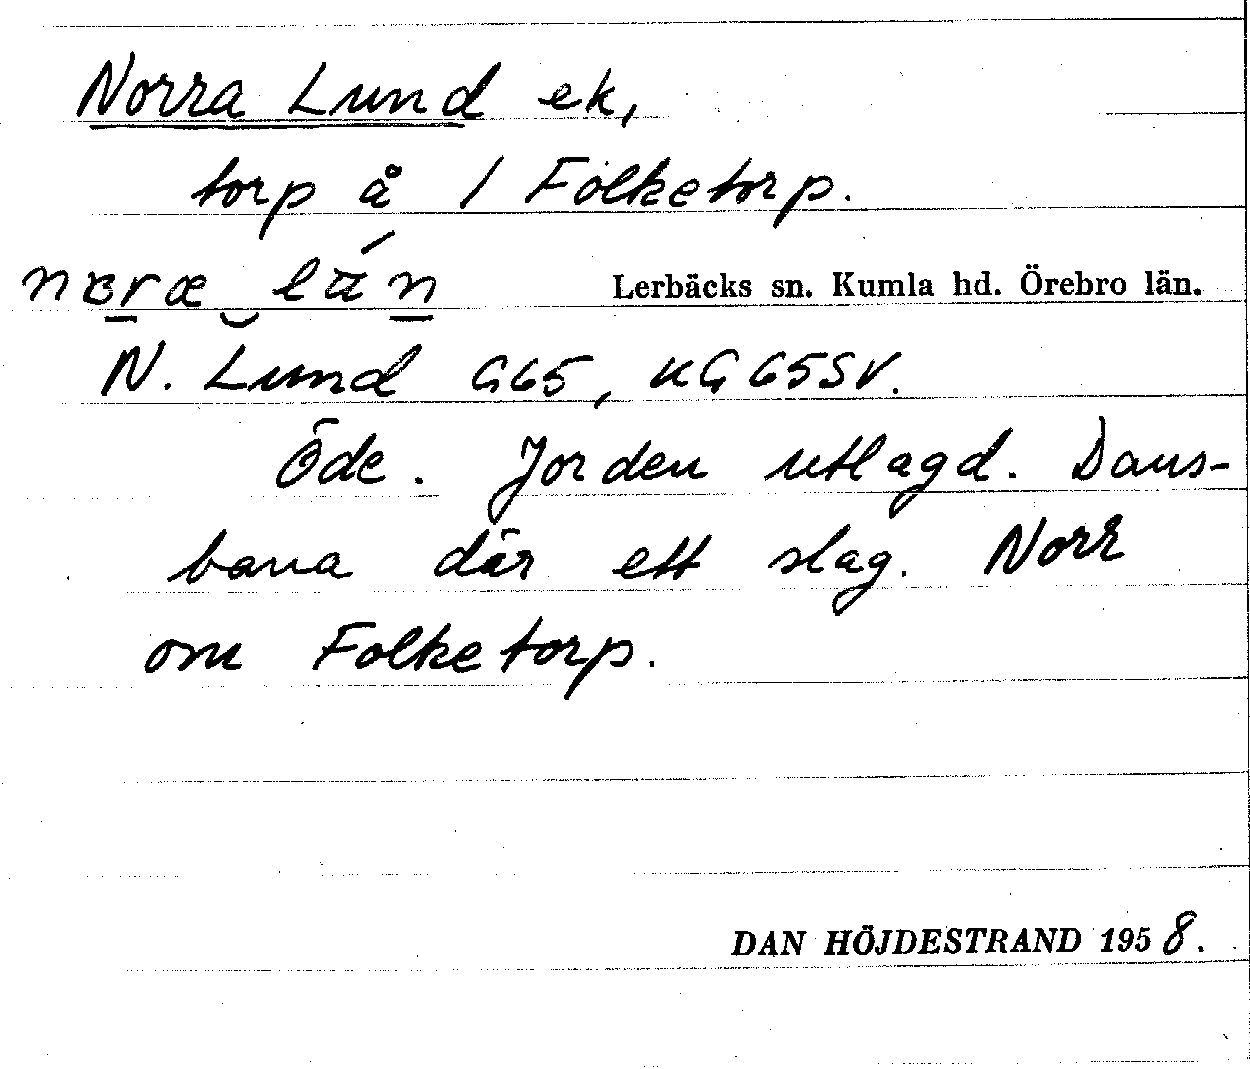 Norra Lund ek,
torp å 1 Folketorp.
Lerbäcks sn. Kumla hd. Örebro län.
N. Lund G65, KG65SV.
Öde. Jorden utlagd. Dans-
bana där ett slag. Norr
om Folketorp.
DAN HÖJDESTRAND 1958.